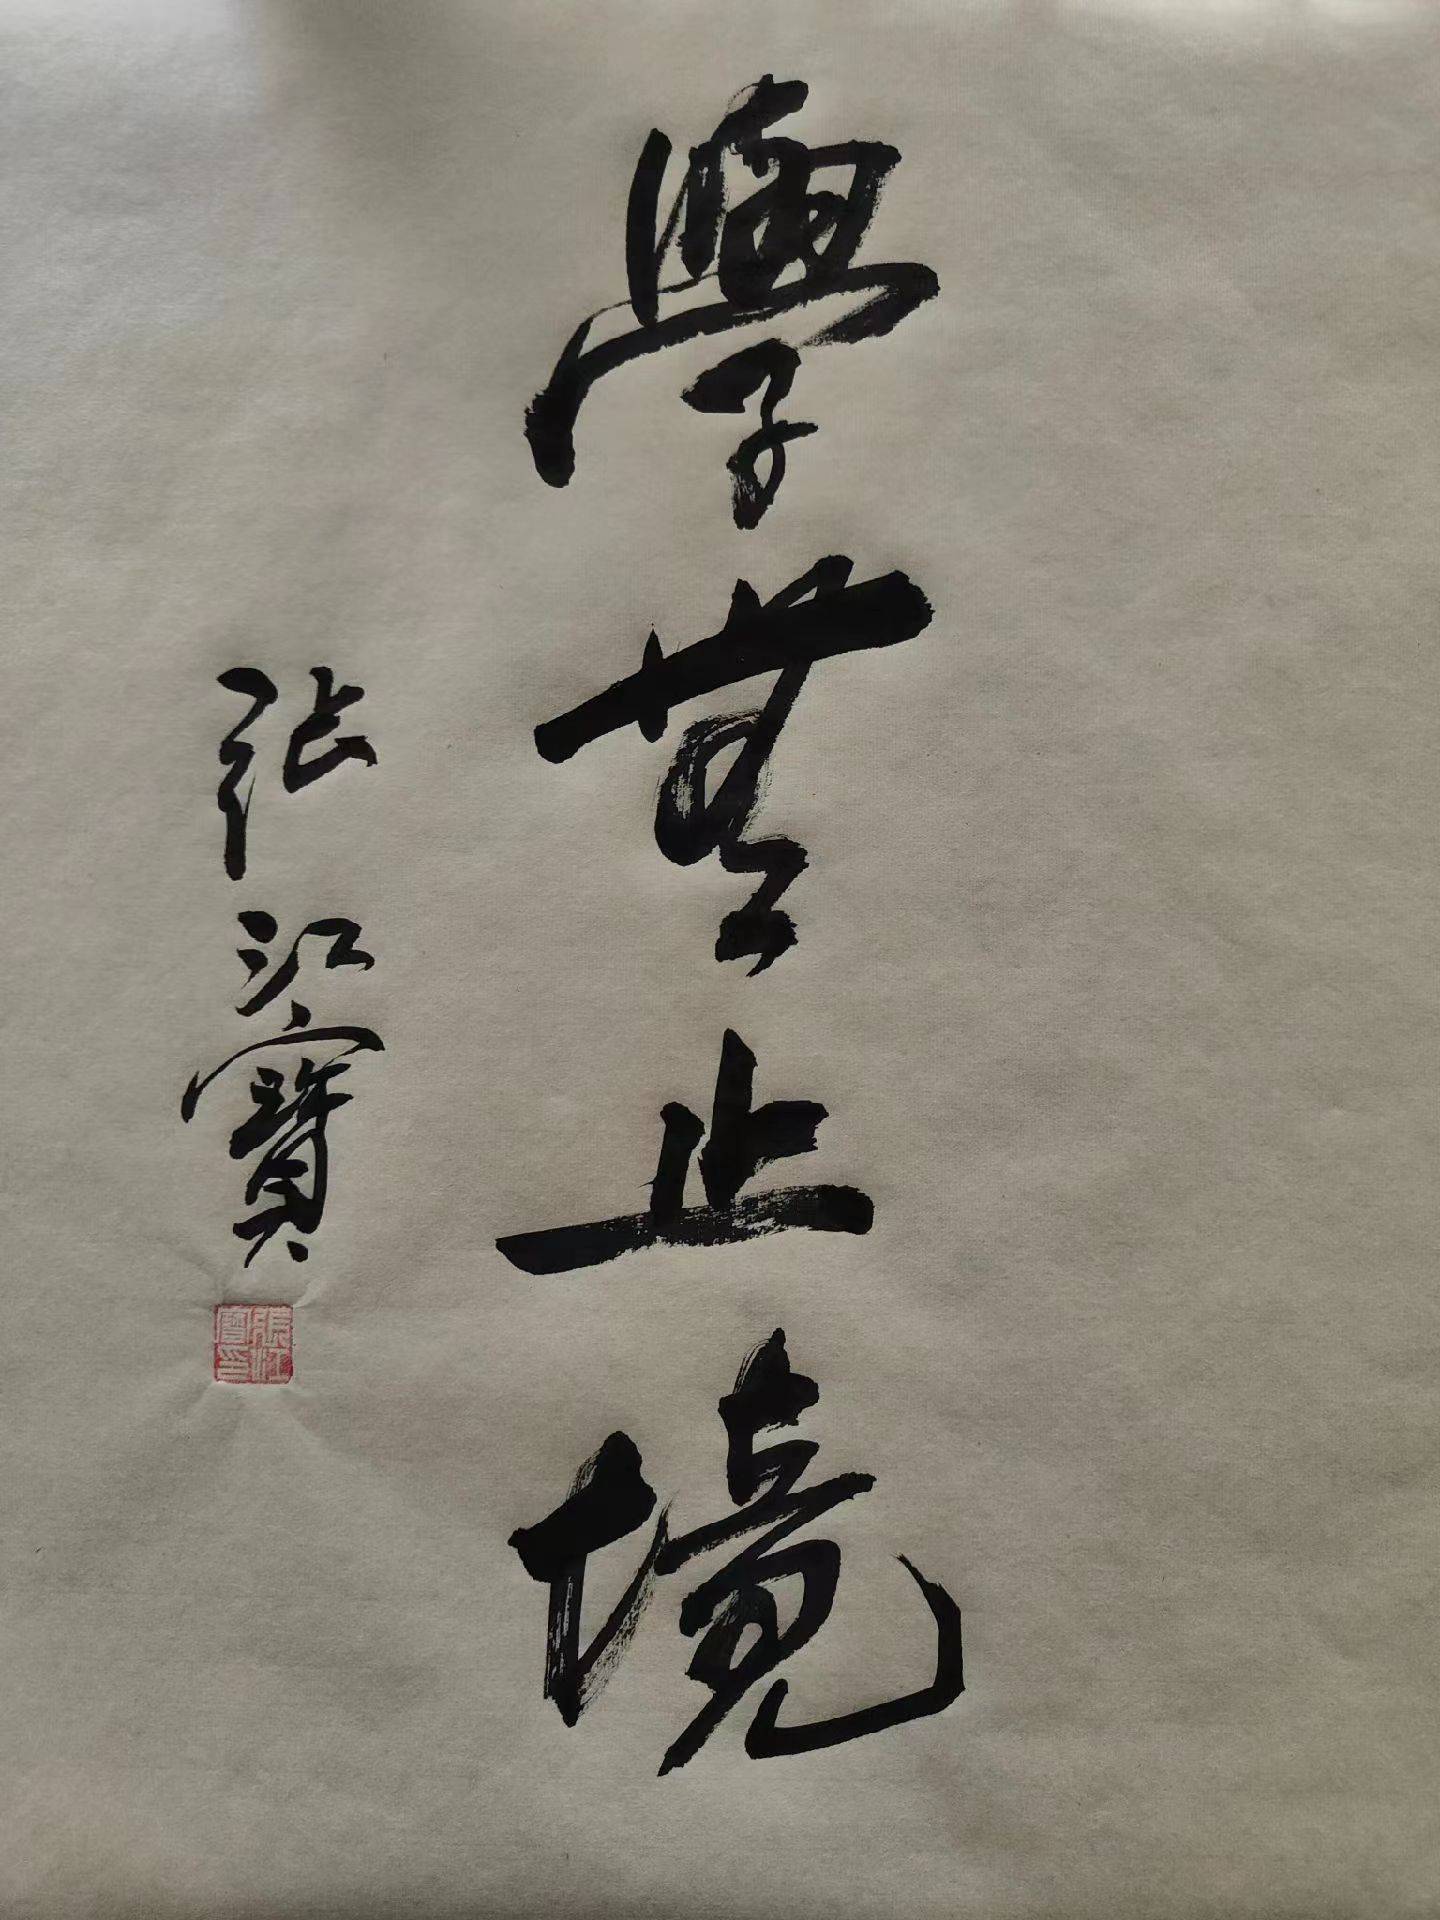 學無止境
張江寶
張江
寶印